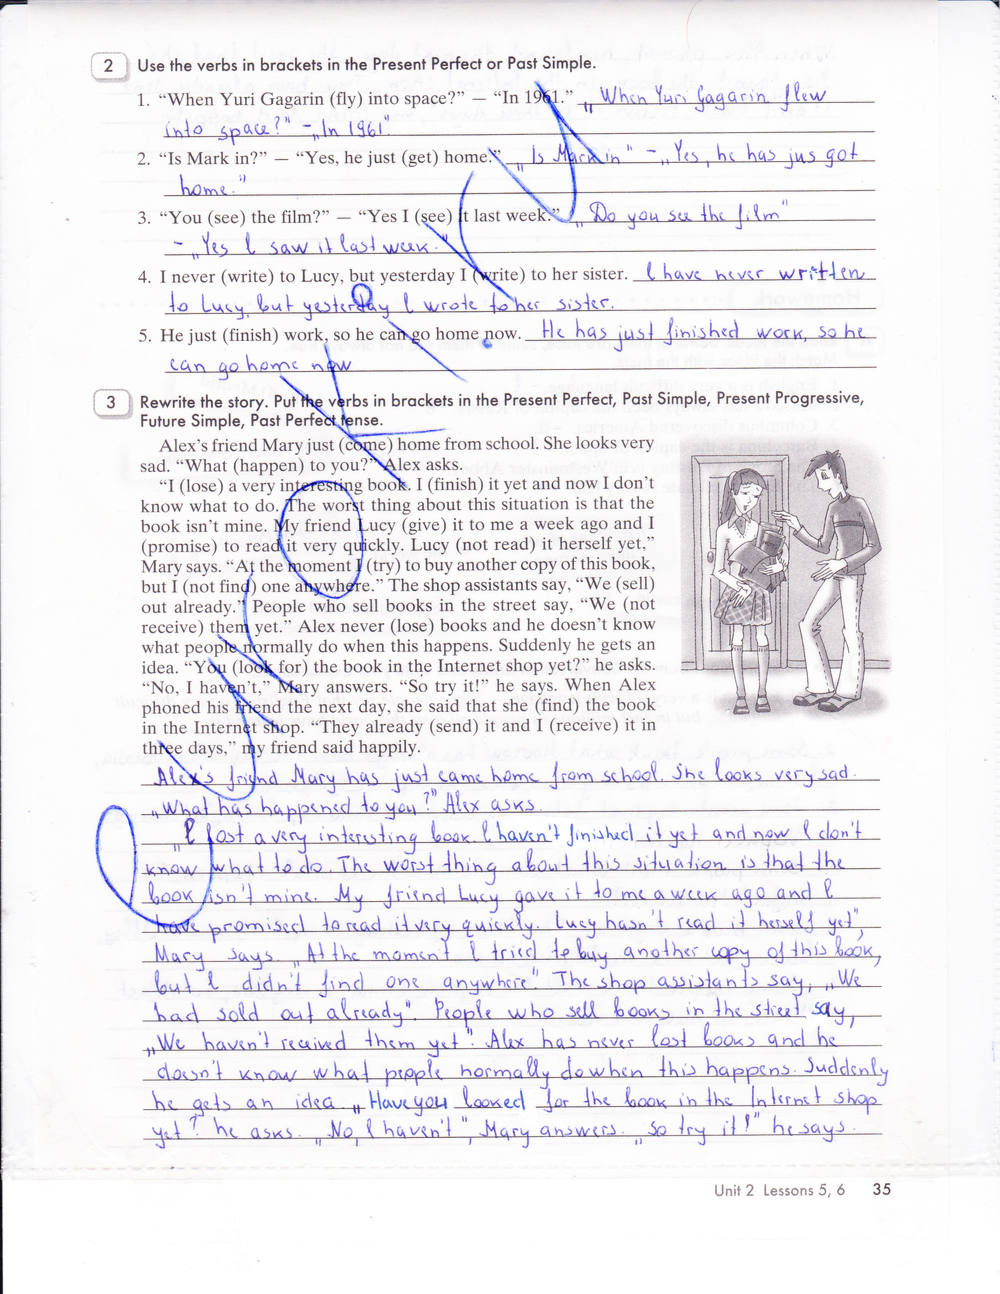 2 Use the verbs in brackets in the Present Perfect or Past Simple.
1. “When Yuri Gagarin (fly) into space?” — “In 1961.” „When Yuri Gagarin flew
into space?" – „In 1961"
2. “Is Mark in?” — “Yes, he just (get) home.” „Is Mark in" – „Yes, he has jus got
home."
3. “You (see) the film?” — “Yes I (see) it last week.” „Do you see the film"
– „Yes I saw it last week."
4. I never (write) to Lucy, but yesterday I (write) to her sister. I have never written
to Lucy, but yesterday I wrote to her sister.
5. He just (finish) work, so he can go home now. He has just finished work, so he
can go home now
3 Rewrite the story. Put the verbs in brackets in the Present Perfect, Past Simple, Present Progressive,
Future Simple, Past Perfect tense.
Alex’s friend Mary just (come) home from school. She looks very
sad. “What (happen) to you?” Alex asks.
“I (lose) a very interesting book. I (finish) it yet and now I don’t
know what to do. The worst thing about this situation is that the
book isn’t mine. My friend Lucy (give) it to me a week ago and I
(promise) to read it very quickly. Lucy (not read) it herself yet,”
Mary says. “At the moment I (try) to buy another copy of this book,
but I (not find) one anywhere.” The shop assistants say, “We (sell)
out already.” People who sell books in the street say, “We (not
receive) them yet.” Alex never (lose) books and he doesn’t know
what people normally do when this happens. Suddenly he gets an
idea. “You (look for) the book in the Internet shop yet?” he asks.
“No, I haven’t,” Mary answers. “So try it!” he says. When Alex
phoned his friend the next day, she said that she (find) the book
in the Internet shop. “They already (send) it and I (receive) it in
three days,” my friend said happily.
Alex's friend Mary has just came home from school. She looks very sad.
„What has happened to you?" Alex asks.
„I lost a very interesting book. I haven't finished it yet and now I don't
know what to do. The worst thing about this situation is that the
book isn't mine. My friend Lucy gave it to me a week ago and I
have promised to read it very quickly. Lucy hasn't read it herself yet",
Mary says. „At the moment I tried to buy another copy of this book,
but I didn't find one anywhere". The shop assistants say, „We
had sold out already". People who sell books in the street say,
„We haven't received them yet". Alex has never lost books and he
doesn't know what people normally do when this happens. Suddenly
he gets an idea „Have you looked for the book in the Internet shop
yet? he asks. „No, I haven't", Mary answers. „So try it!" he says.
Unit 2 Lessons 5, 6 35